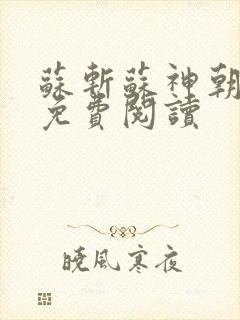 蘇斬蘇神朝
免費閱讀
曉風寒夜